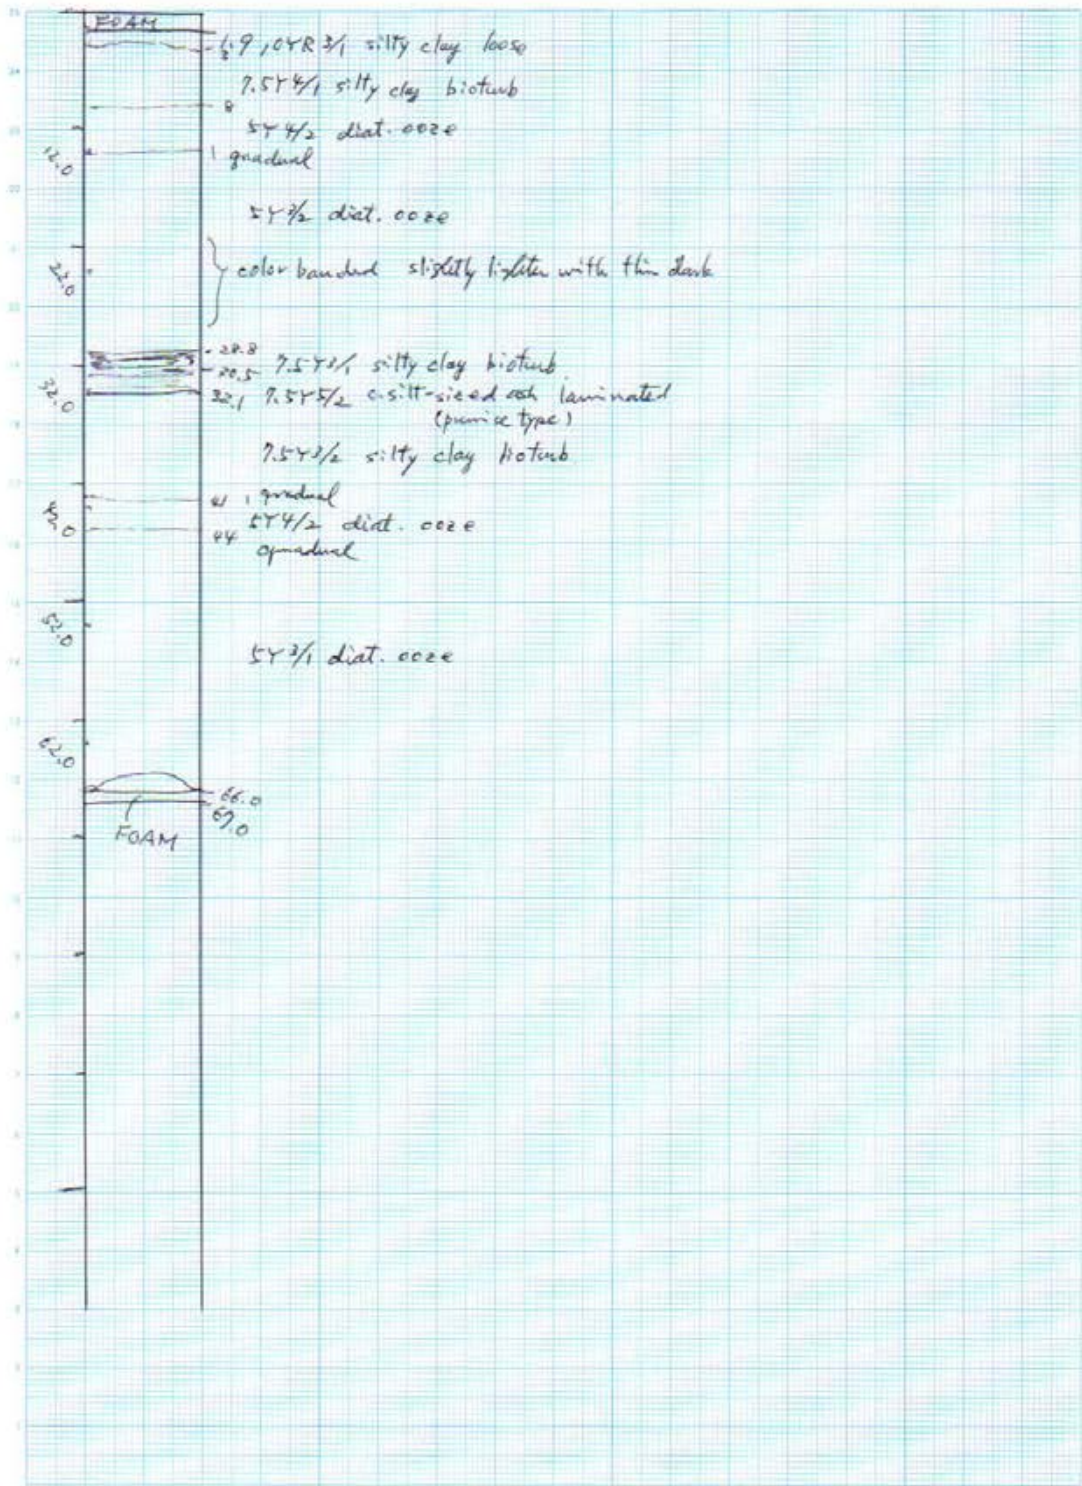 FOAM
1.9 10YR 3/1 silty clay loose
3
7.5Y 4/1 silty clay bioturb
8
5Y 4/2 diat. ooze
12.0
gradual
5Y 3/2 diat. ooze
22.0 color banded slightly lighter with thin dark
28.8
30.5 7.5Y 3/1 silty clay bioturb
32.0 32.1 7.5Y 5/2 c.silt-sized ash laminated
(pumice type)
7.5Y 3/2 silty clay bioturb
41 gradual
42.0 5Y 4/2 diat. ooze
44 gradual
52.0
5Y 3/1 diat. ooze
62.0
66.0
67.0
FOAM